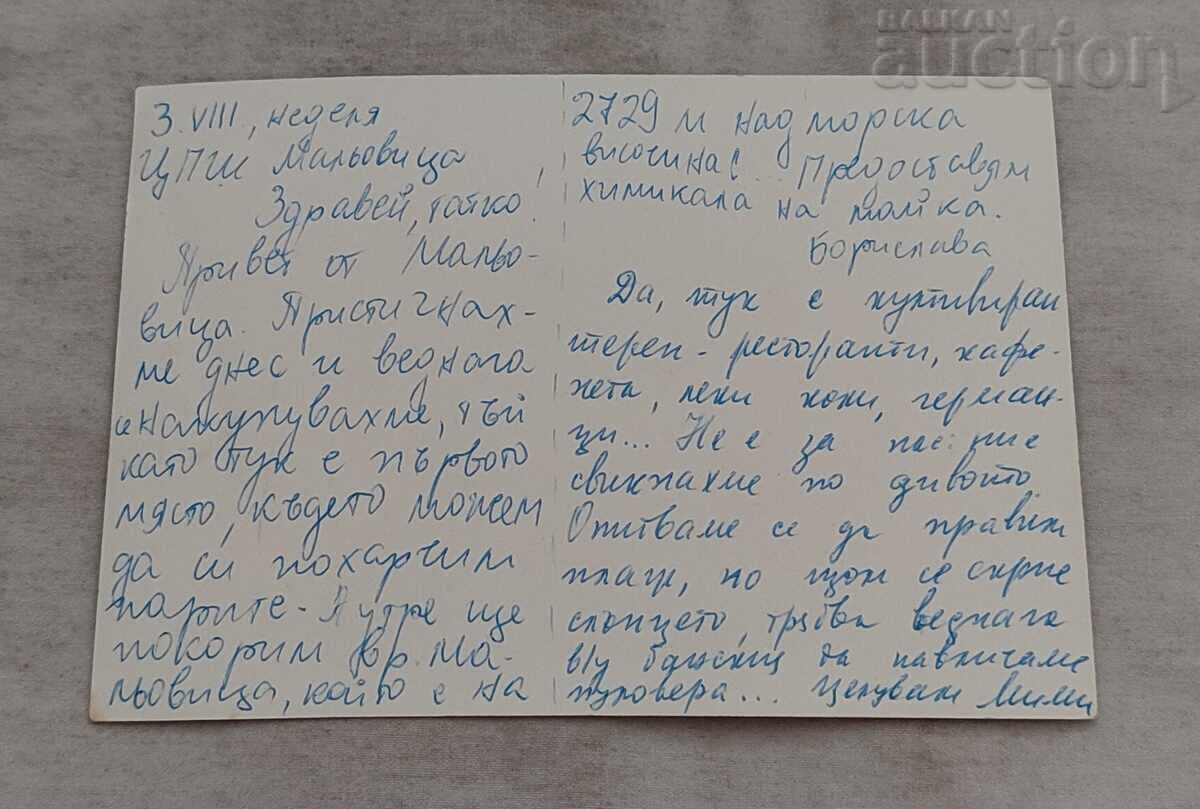 BALKAN
auction
3. VIII., неделя
ЦПШ Мальовица
Здравей, татко!
Привет от Мальо-
вица. Пристигнах-
ме днес и веднага
се напазарувахме, тъй
като тук е първото
място, където можем
да си похарчим
парите. А утре ще
покорим вр. Ма-
льовица, който е на
2729 м надморска
височина! Предоставям
химикала на майка.
Борислава
Да, тук е култивиран
терен - ресторанти, кафе-
нета, леки коли, герман-
ци... Не е за нас: ние
свикнахме по дивото.
Опитваме се да правим
плаж, но щом се скрие
слънцето, трябва веднага
в/у банския да навличаме
пуловера... Целувам Мими